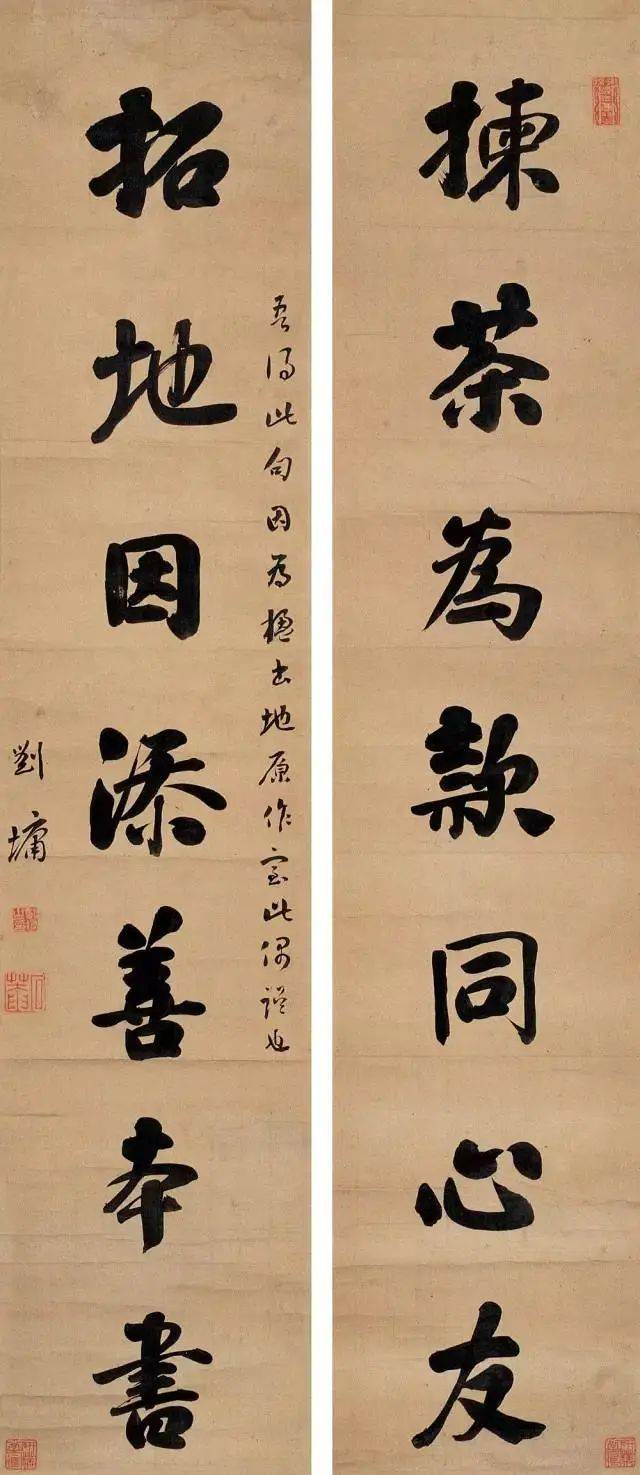 揀茶為款同心友
吾得此句因為楹書地原作室此偶誤也
拓地因添善本書
劉墉